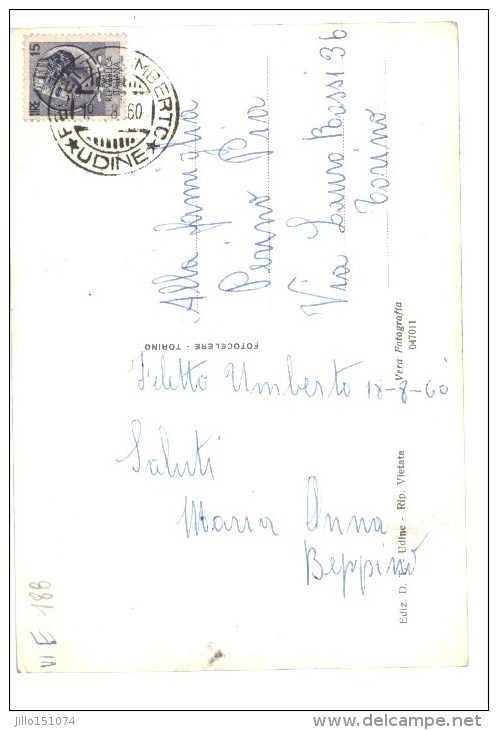 LIRE 15
REPUBBLICA
ITALIANA
UMBERTO
UDINE
60
Alla famiglia
Perino Pia
Via Laura Rossi 36
Torino
FOTOCELERE - TORINO
Vera Fotografia
047011
Filetto Umberto 18-8-60
Saluti
Maria Anna
Beppino
Ediz. D. Udine - Rip. Vietata
VI E 188
jillo151074
delcampe.net